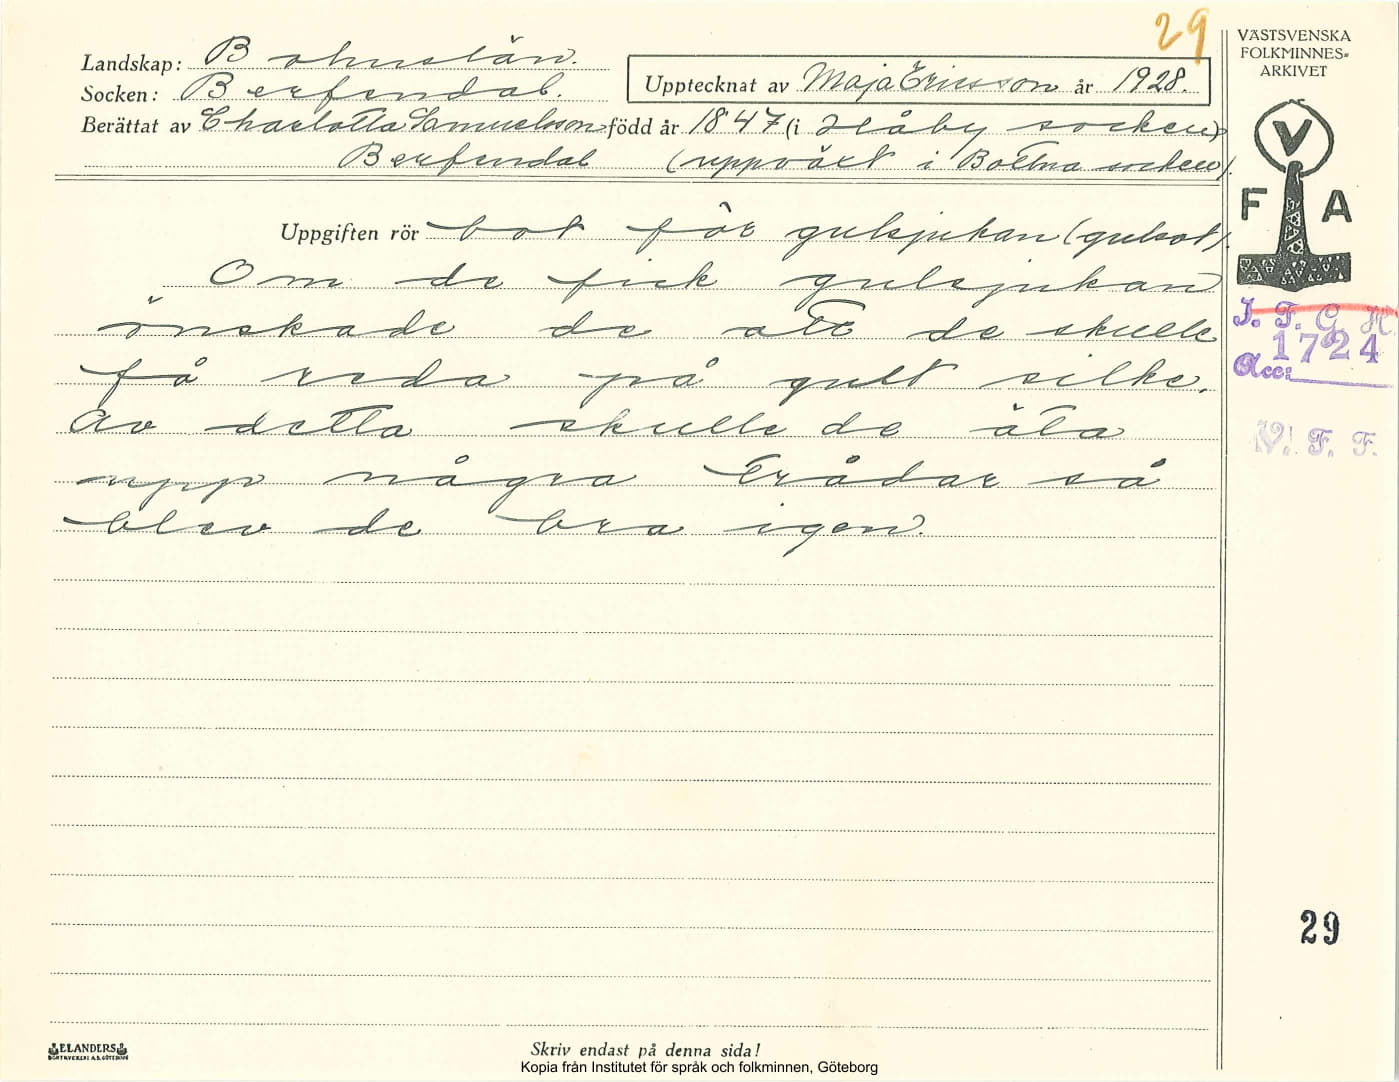 29
VÄSTSVENSKA
FOLKMINNES=
ARKIVET
Landskap: Bohuslän.
Socken: Berfendal.
Upptecknat av Maja Ericsson år 1928.
Berättat av Charlotta Samuelsson född år 1847 (i Håby socken)
Berfendal (uppväxt i Bottna socken).
V
F A
Uppgiften rör bot för gulsjukan (gulsot).
Om de fick gulsjukan
önskade de att de skulle
få reda på gult silke.
Av detta skulle de äta
upp några trådar så
blev de bra igen.
I. F. G. H.
1724
Acc:
V. F. F.
29
ELANDERS
BOKTRYCKERI A.B. GÖTEBORG
Skriv endast på denna sida!
Kopia från Institutet för språk och folkminnen, Göteborg